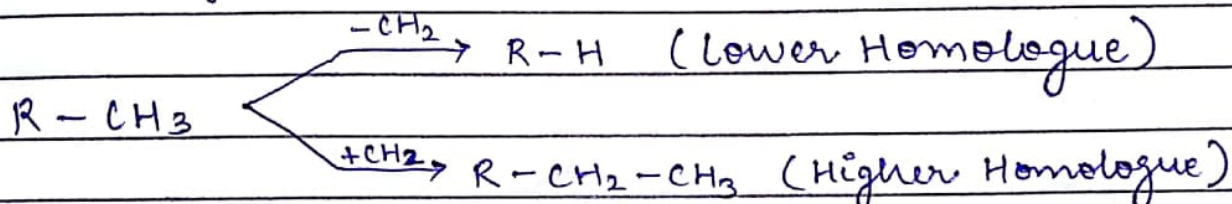 -CH2
R-H (Lower Homologue)
R-CH3
+CH2
R-CH2-CH3 (Higher Homologue)